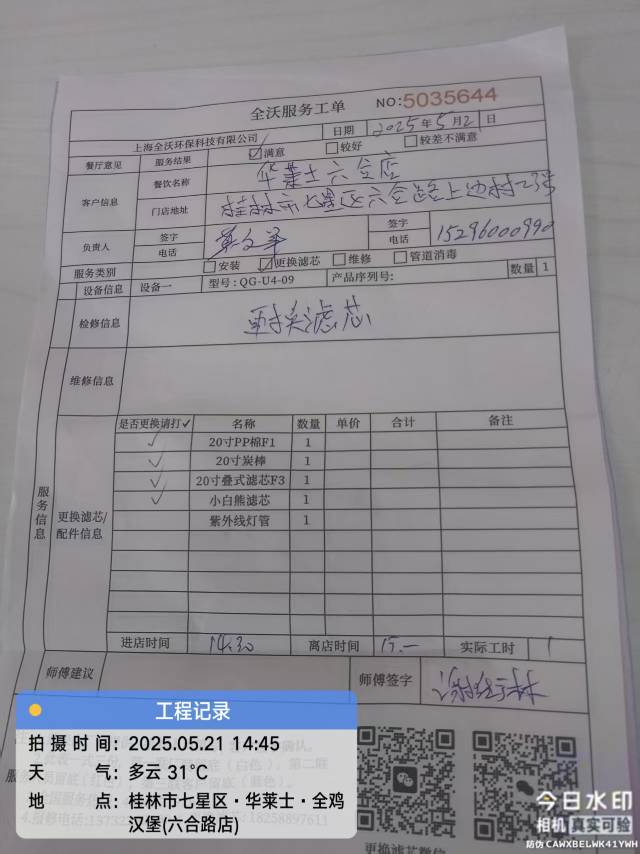 全沃服务工单
NO:5035644
上海全沃环保科技有限公司
日期 2025年5月21日
餐厅意见 服务结果 ☑满意 □较好 □较差不满意
客户信息 餐饮名称 华莱士六合店
门店地址 桂林市七星区六合路上边村23号
负责人 签字 签字
电话 电话 15296000990
服务类别 □安装 ☑更换滤芯 □维修 □管道消毒
设备信息 设备一 型号:QG-U4-09 产品序列号: 数量 1
检修信息 更换滤芯
维修信息
服务信息
更换滤芯/
配件信息
是否更换请打✓ 名称 数量 单价 合计 备注
✓ 20寸PP棉F1 1
✓ 20寸炭棒 1
✓ 20寸叠式滤芯F3 1
✓ 小白熊滤芯 1
紫外线灯管 1
进店时间 14:30 离店时间 15:— 实际工时 1
师傅建议 师傅签字
工程记录
拍摄时间：2025.05.21 14:45
天气：多云 31°C
地点：桂林市七星区·华莱士·全鸡
汉堡(六合路店)
18258897611
更换滤芯微信
今日水印
相机 真实可验
防伪 CAWXBELWK41YWH